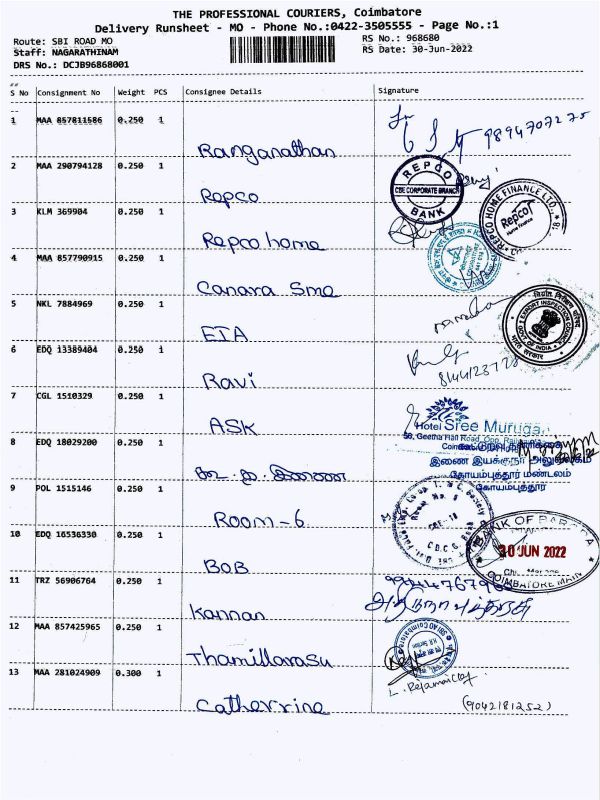 THE PROFESSIONAL COURIERS, Coimbatore
Delivery Runsheet - MO - Phone No.:0422-3505555 - Page No.:1
Route: SBI ROAD MO
RS No.: 968680
Staff: NAGARATHINAM
RS Date: 30-Jun-2022
DRS No.: DCJB96868001
##
S No Consignment No Weight PCS Consignee Details Signature
1 MAA 857811586 0.250 1
9894707275
Ranganathan
2 MAA 290794128 0.250 1
REPCO
CBE CORPORATE BRANCH
BANK
Repco
REPCO HOME FINANCE LTD.
Repco
Home Finance
3 KLM 369904 0.250 1
Repco home
4 MAA 857790915 0.250 1
Canara Sme
5 NKL 7884969 0.250 1
EIA
EXPORT INSPECTION COUNCIL
GOVT OF INDIA
6 EDQ 13389404 0.250 1
8144123728
Ravi
7 CGL 1510329 0.250 1
ASK
Hotel Sree Murugan
56, Geetha Hall Road, Opp. Railway
8 EDQ 18029200 0.250 1
இணை இயக்குநர் அலுவலகம்
கோயம்புத்தூர் மண்டலம்
கோயம்புத்தூர்
9 POL 1515146 0.250 1
Room No. 6
CBE-18
C.D.C.G.
Room-6
10 EDQ 16536330 0.250 1
BANK OF BARODA
30 JUN 2022
COIMBATORE MAIN
BOB
11 TRZ 56906764 0.250 1
Kannan
12 MAA 857425965 0.250 1
Thamillarasu
13 MAA 281024909 0.300 1
(9042181252)
Catherrine